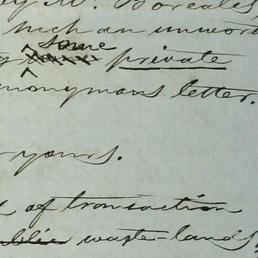 y M. Boreales,
such an unwor
some
private
nonymous letter.
yours.
of transaction
waste-lands,